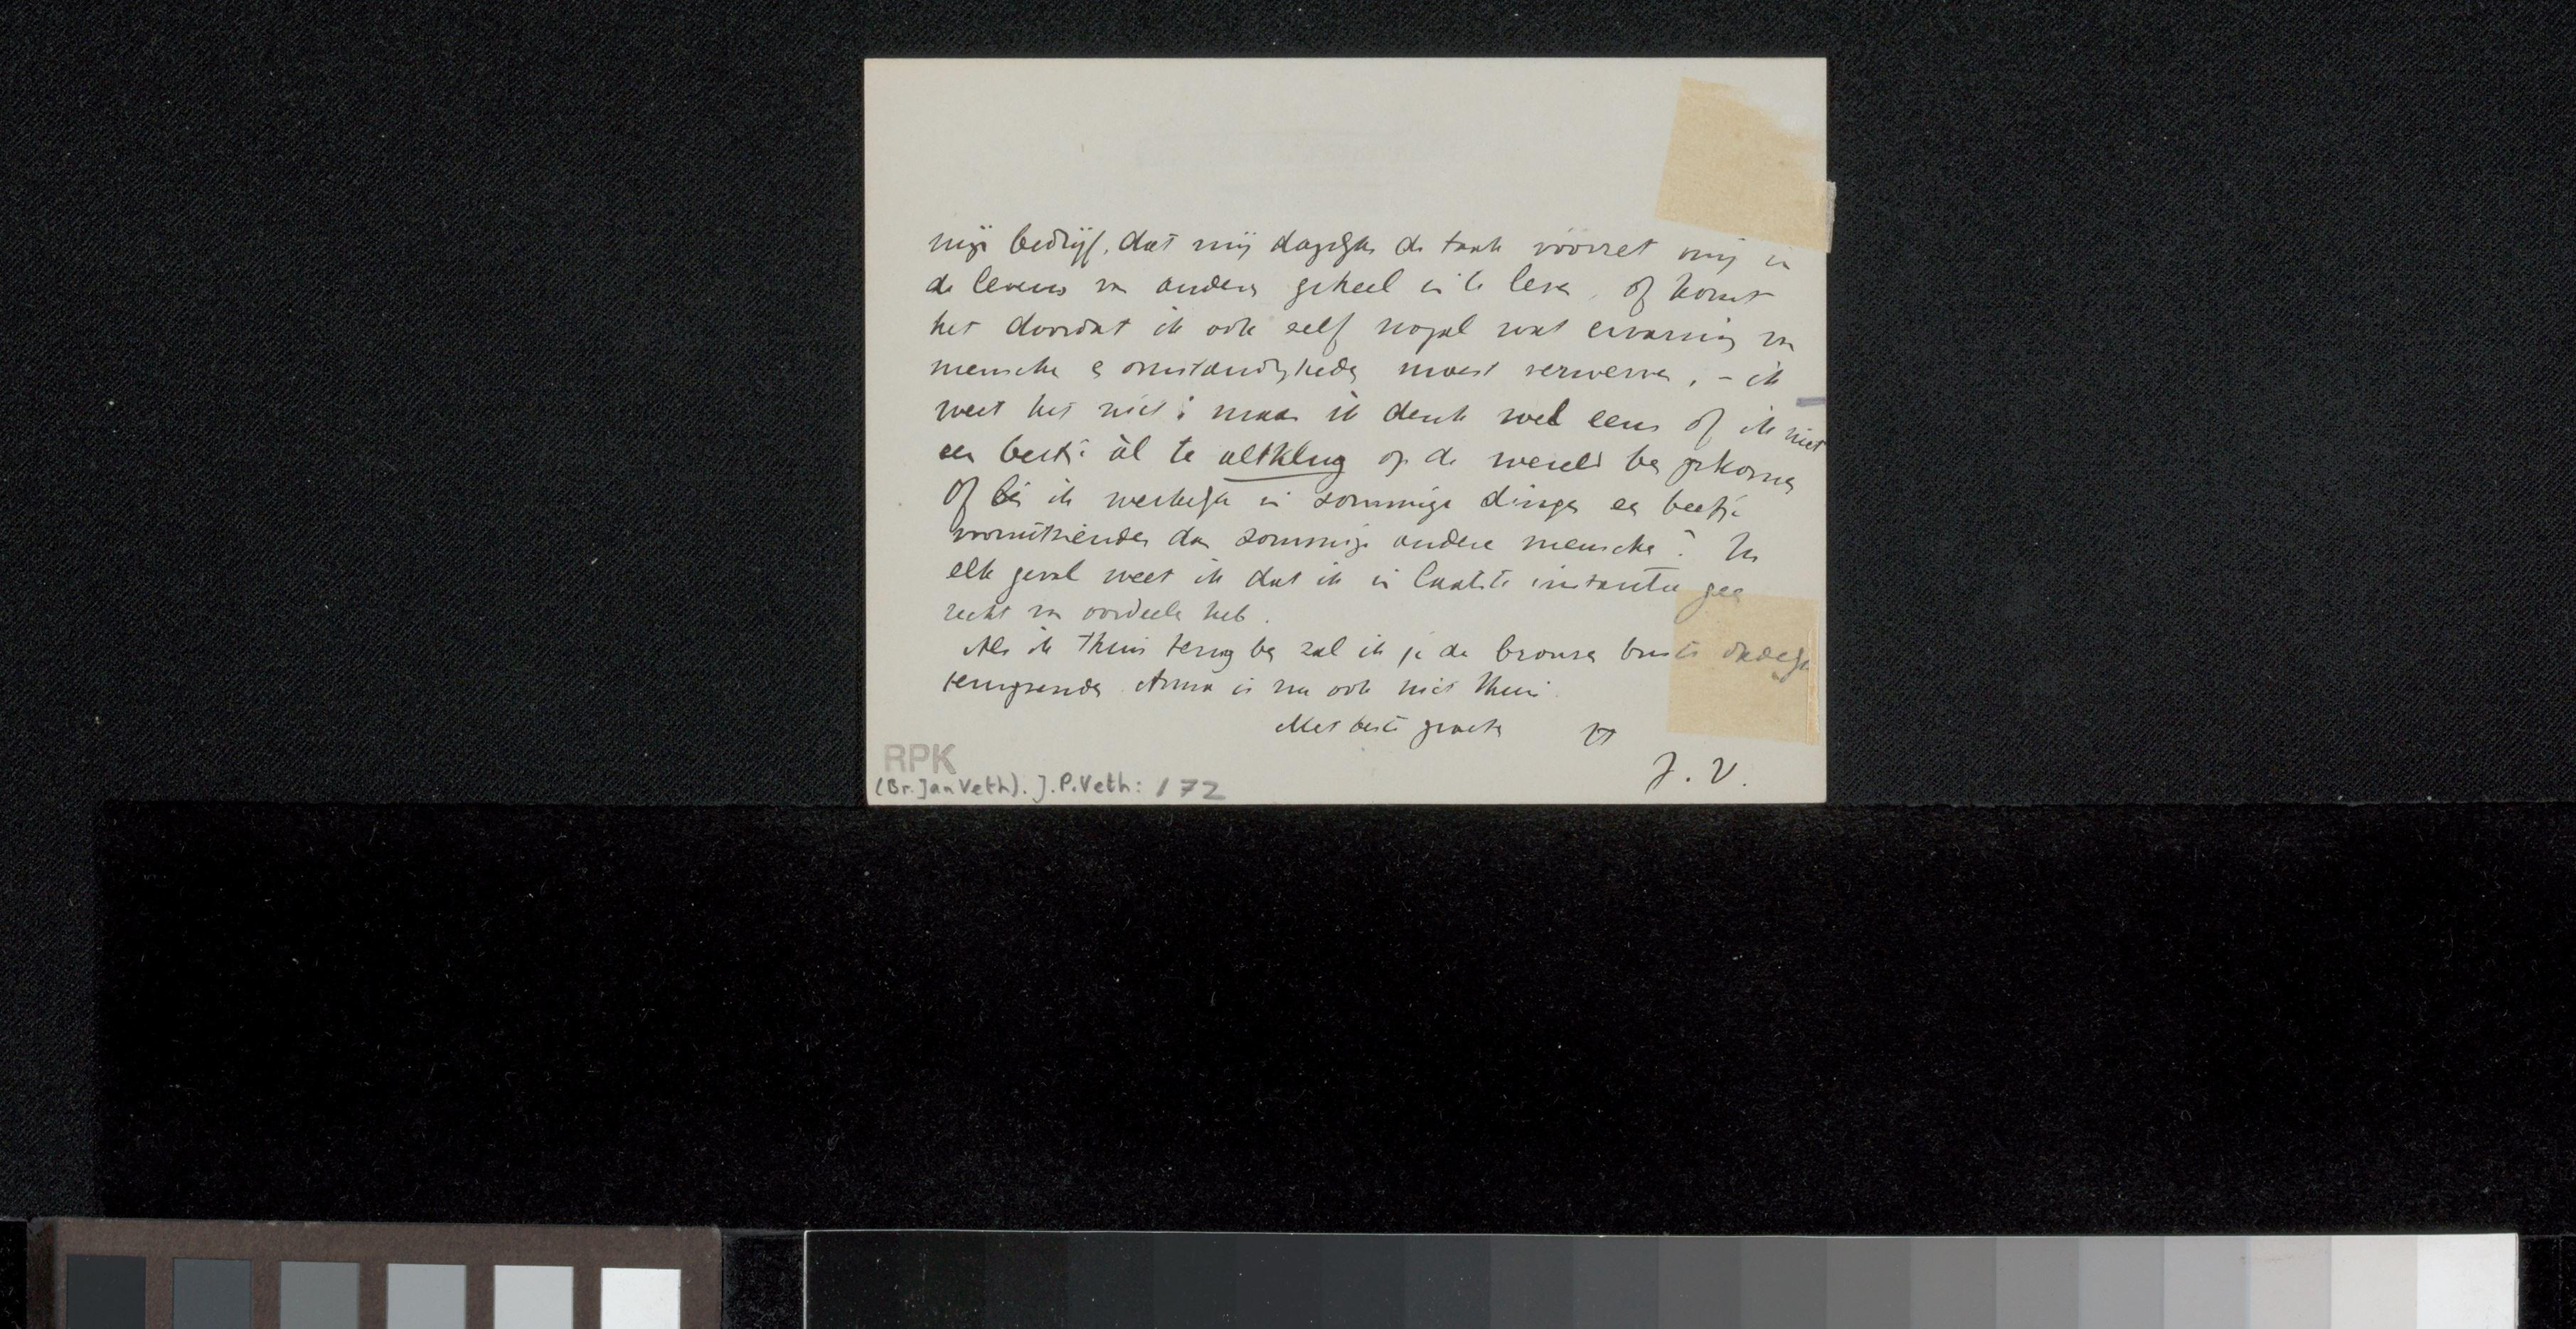 mijn bedrijf, dat mij dagelijks de taak voorzet mij in
de levens van anderen geheel in te leven, of komt
het doordat ik ook zelf nogal wat ervaring van
menschen en omstandigheden moest verwerven, – ik
weet het niet: maar ik denk wel eens of ik niet
een beetje àl te altklug op de wereld ben gekomen
Of ben ik werkelijk in sommige dingen een beetje
vooruitziender dan sommige andere menschen? In
elk geval weet ik dat ik in laatste instantie geen
recht van oordeelen heb.
Als ik thuis terug ben zal ik je de bronzen buste dadelijk
terugzenden. Anna is nu ook niet thuis.
Met beste groeten tt
J. V.
RPK
(Br. Jan Veth). J.P. Veth: 172